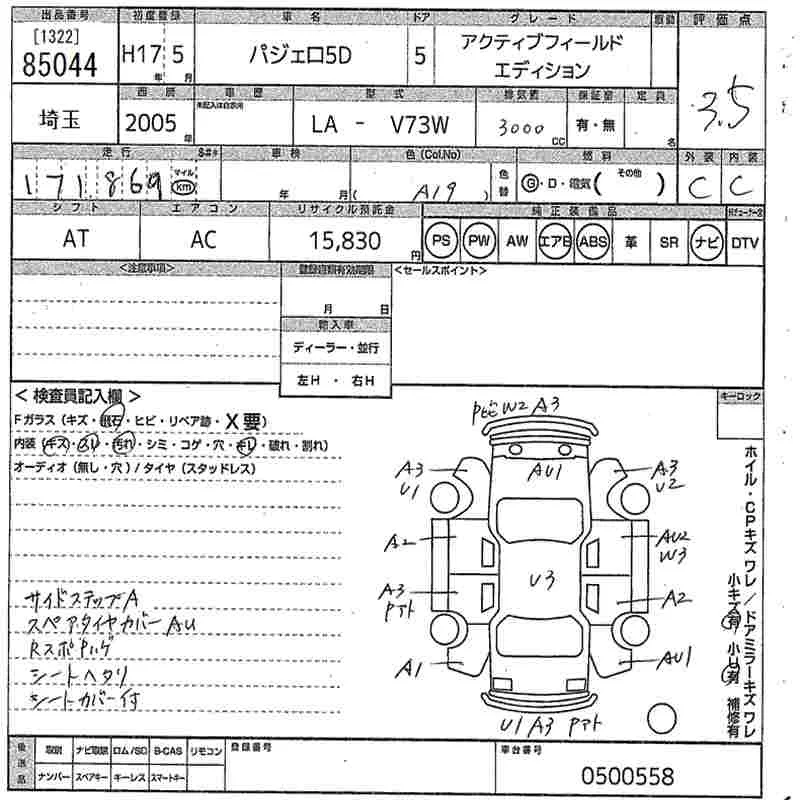 出品番号 初度登録 車名 ドア グレード 評価点
[1322]
85044 H17年 5月 パジェロ5D 5 アクティブフィールド
エディション
3.5
埼玉 西暦 車歴 型式 排気量 保証書 定員
未記入は自家用
2005年 LA - V73W 3000cc 有・無 名
走行 車検 色(Col.No) 燃料 外装 内装
171,869 マイル km 年 月 ( A19 ) 色替 G・D・電気( その他 ) C C
シフト エアコン リサイクル預託金 純正装備品
AT AC 15,830円 PS PW AW エアB ABS 革 SR ナビ DTV
<注意事項> <セールスポイント>
月 日
輸入車
ディーラー・並行
左H ・ 右H
<検査員記入欄> キーロック
Fガラス(キズ・飛石・ヒビ・リペア跡・X要)
内装(キズ・スレ・汚れ・シミ・コゲ・穴・キレ・破れ・割れ)
オーディオ(無し・穴)/タイヤ(スタッドレス)
PヒビW2 A3
AU1
A3
U1
A3
U2
A2
AU2
W3
U3
A3
Pアト
A2
A1
AU1
U1 A3 Pアト
サイドステップA
スペアタイヤカバーAU
RスポPハゲ
シートヘタリ
シートカバー付
ホイル・CPキズ ワレ/ドアミラーキズ ワレ
小キズ有 小U有 補修有
後返品 取説 ナビ取説 ロム/SD B-CAS リモコン 登録番号 車台番号
ナンバー スペアキー キーレス スマートキー
0500558